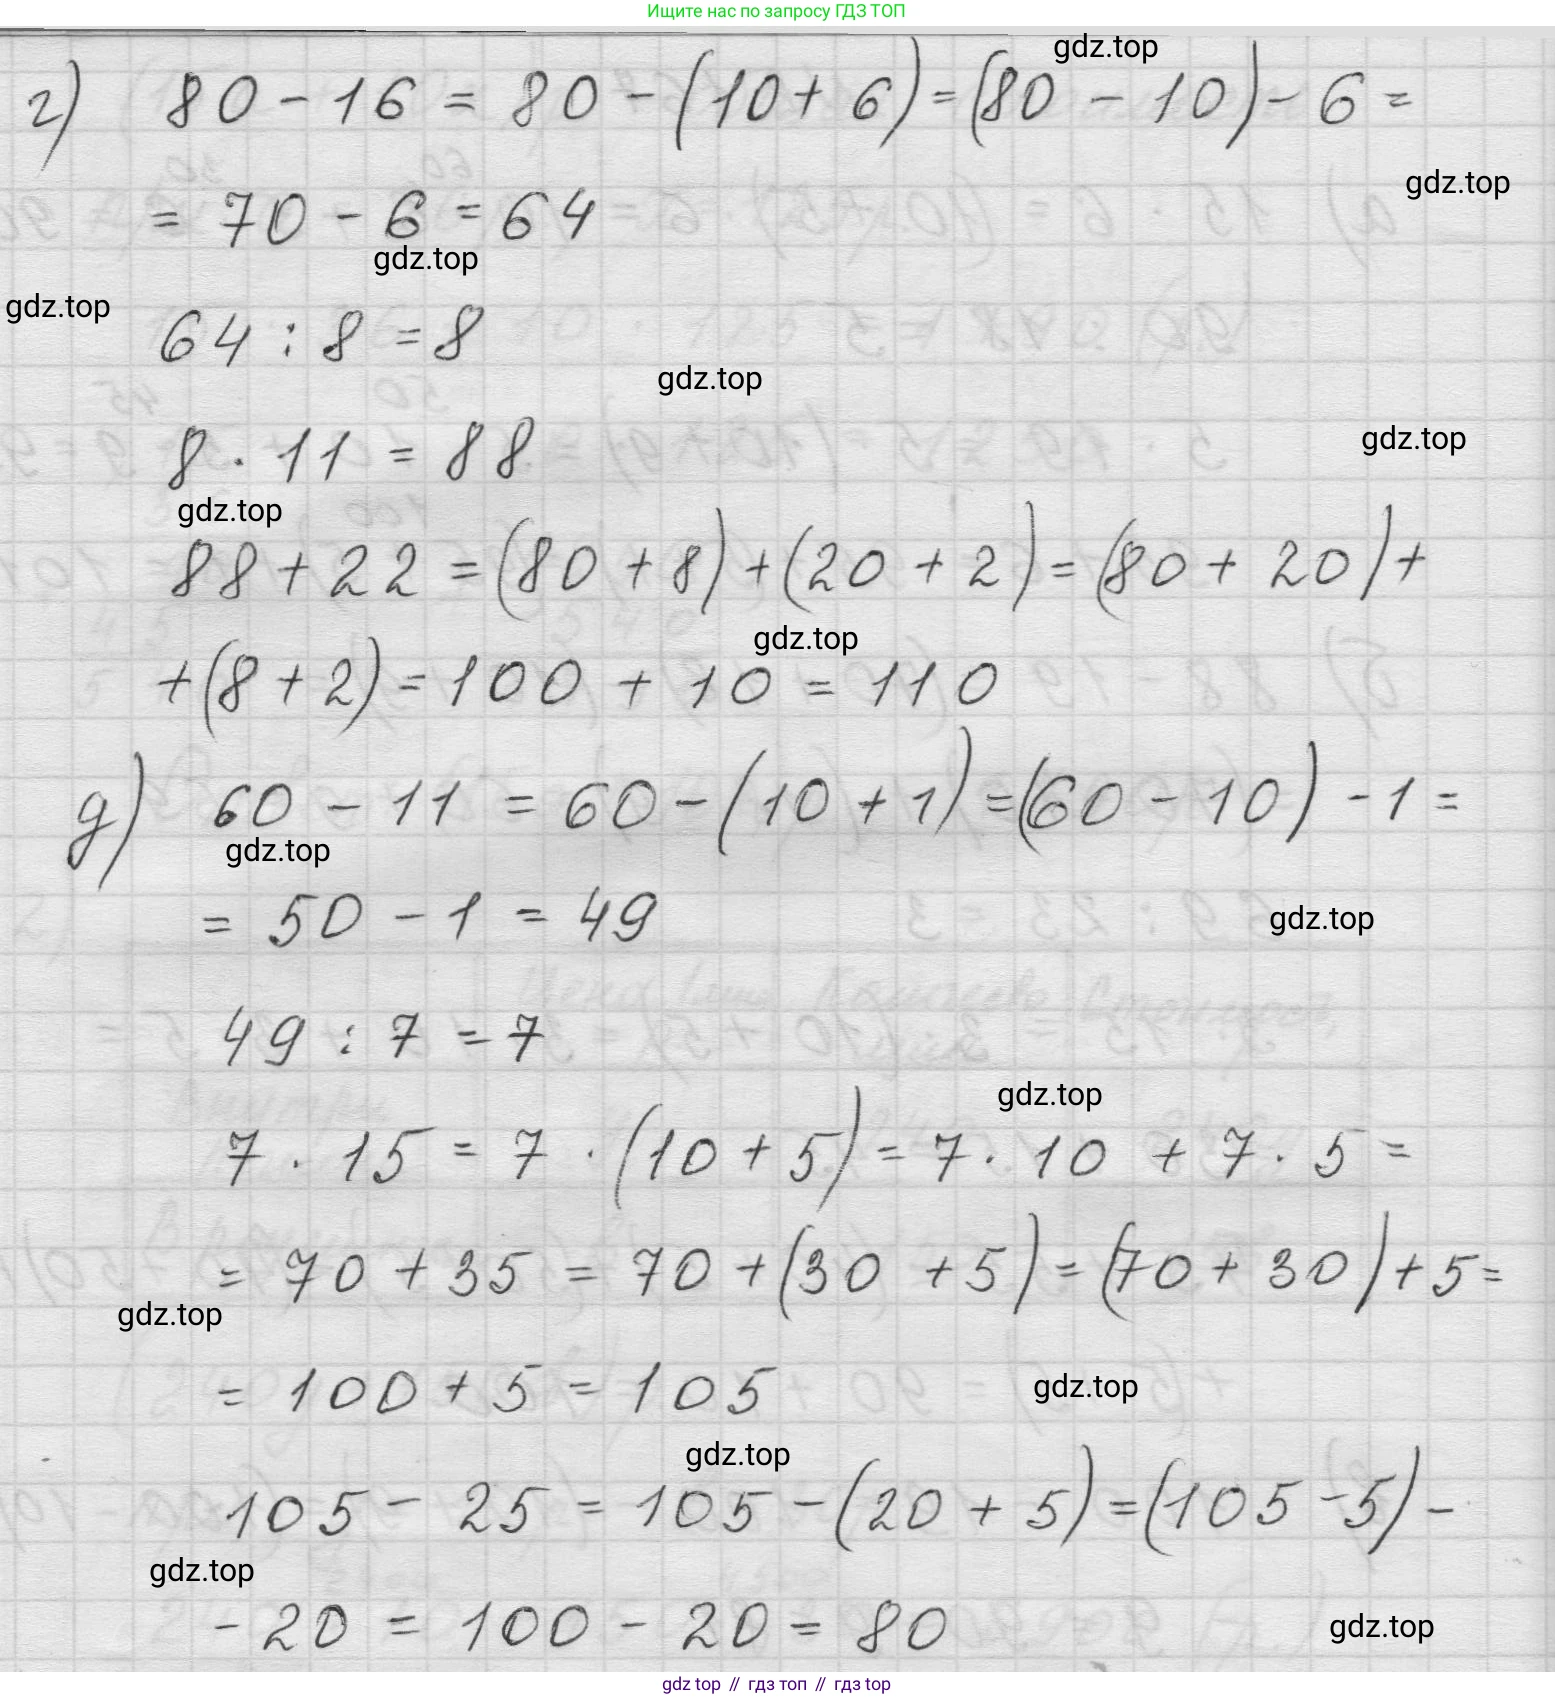 Ищите нас по запросу ГДЗ ТОП
gdz.top
г) 80 - 16 = 80 - (10 + 6) = (80 - 10) - 6 =
gdz.top
= 70 - 6 = 64
gdz.top
gdz.top
64 : 8 = 8
gdz.top
gdz.top
8 · 11 = 88
gdz.top
88 + 22 = (80 + 8) + (20 + 2) = (80 + 20) +
gdz.top
+ (8 + 2) = 100 + 10 = 110
д) 60 - 11 = 60 - (10 + 1) = (60 - 10) - 1 =
gdz.top
= 50 - 1 = 49
gdz.top
49 : 7 = 7
gdz.top
7 · 15 = 7 · (10 + 5) = 7 · 10 + 7 · 5 =
= 70 + 35 = 70 + (30 + 5) = (70 + 30) + 5 =
gdz.top
= 100 + 5 = 105
gdz.top
gdz.top
105 - 25 = 105 - (20 + 5) = (105 - 5) -
gdz.top
- 20 = 100 - 20 = 80
gdz.top
gdz top // гдз топ // гдз top